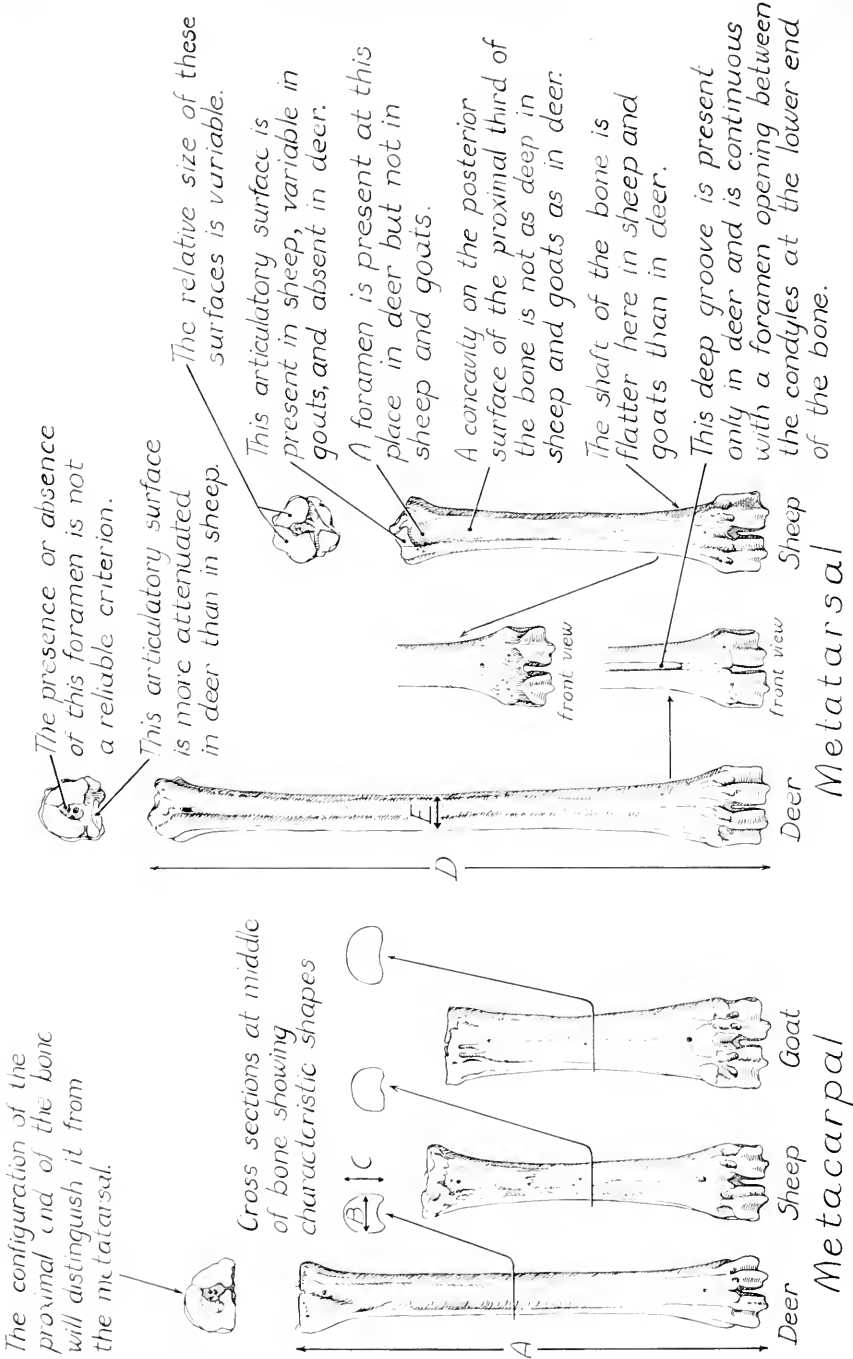 The configuration of the
proximal end of the bone
will distinguish it from
the metatarsal.
Cross sections at middle
of bone showing
characteristic shapes
A
B
C
Deer
Sheep
Goat
Metacarpal
The presence or absence
of this foramen is not
a reliable criterion.
This articulatory surface
is more attenuated
in deer than in sheep.
D
E
The relative size of these
surfaces is variable.
This articulatory surface is
present in sheep, variable in
goats, and absent in deer.
A foramen is present at this
place in deer but not in
sheep and goats.
A concavity on the posterior
surface of the proximal third of
the bone is not as deep in
sheep and goats as in deer.
The shaft of the bone is
flatter here in sheep and
goats than in deer.
This deep groove is present
only in deer and is continuous
with a foramen opening between
the condyles at the lower end
of the bone.
front view
front view
Deer
Sheep
Metatarsal